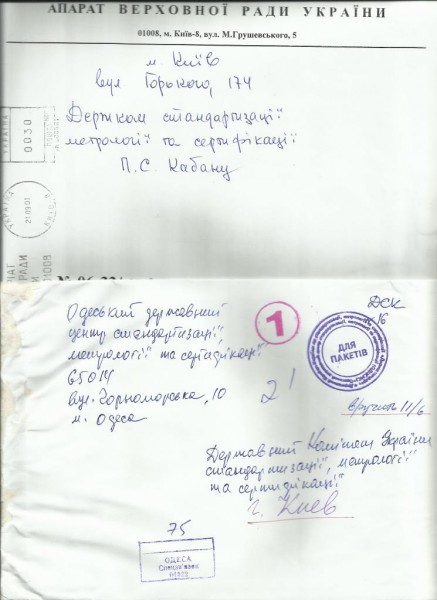 АПАРАТ ВЕРХОВНОЇ РАДИ УКРАЇНИ
01008, м. Київ-8, вул. М.Грушевського, 5
м. Київ
вул Горького, 174
Держком стандартизації
метрології та сертифікації
П.С. Кабану
УКРАЇНА
0030
УКРАЇНА
21.03.01
РАДИ
01008
Одеський державний
центр стандартизації,
метрології та сертифікації
65014
вул. Чорноморська, 10
м. Одеса
1
ДСК
16
ДЛЯ
ПАКЕТІВ
2
вручить 11/6
Державний Комітет України
стандартизації, метрології
та сертифікації
г. Киев
75
ОДЕСА
Спецзв'язок